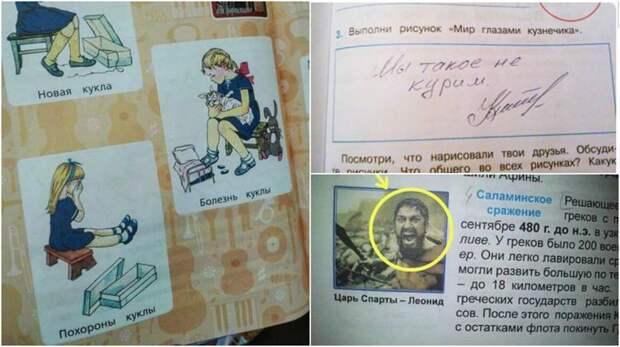 Новая кукла
Болезнь куклы
Похороны куклы
3. Выполни рисунок «Мир глазами кузнечика».
Мы такое не
курим.
Посмотри, что нарисовали твои друзья. Обсуди-
рисунки. Что общего во всех рисунках? Какую
Афины.
Саламинское
сражение
Решающее
греков с
сентябре 480 г. до н.э. в
ливе. У греков было 200
ер. Они легко лавировали
могли развить большую по
– до 18 километров в час.
греческих государств
сов. После этого поражения
с остатками флота покинуть
Царь Спарты – Леонид